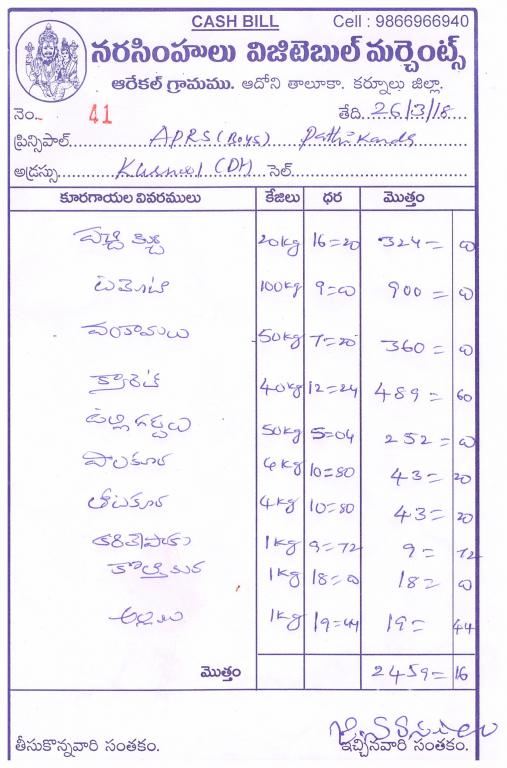 CASH BILL Cell : 9866966940
నరసింహులు విజిటెబుల్ మర్చెంట్స్
ఆరేకల్ గ్రామము. ఆదోని తాలూకా. కర్నూలు జిల్లా.
నెం. 41 తేది. 26/3/18
ప్రిన్సిపాల్ APRS (Boys)
అడ్రస్సు Kurnool (Dt) సెల్
కూరగాయల వివరములు కేజీలు ధర మొత్తం
20kg 16=20 324= 0
టమోటా 100kg 9=0 900= 0
వంకాయలు 50kg 7=20 360= 0
క్యారెట్ 40kg 12=24 489= 60
ఉల్లి గడ్డలు 50kg 5=04 252= 0
పాలకూర 4kg 10=80 43= 20
తోటకూర 4kg 10=80 43= 20
కరివేపాకు 1kg 9=72 9= 72
కొత్తిమీర 1kg 18=0 18= 0
అల్లం 1kg 19=44 19= 44
మొత్తం 2459= 16
తీసుకొన్నవారి సంతకం. ఇచ్చినవారి సంతకం.